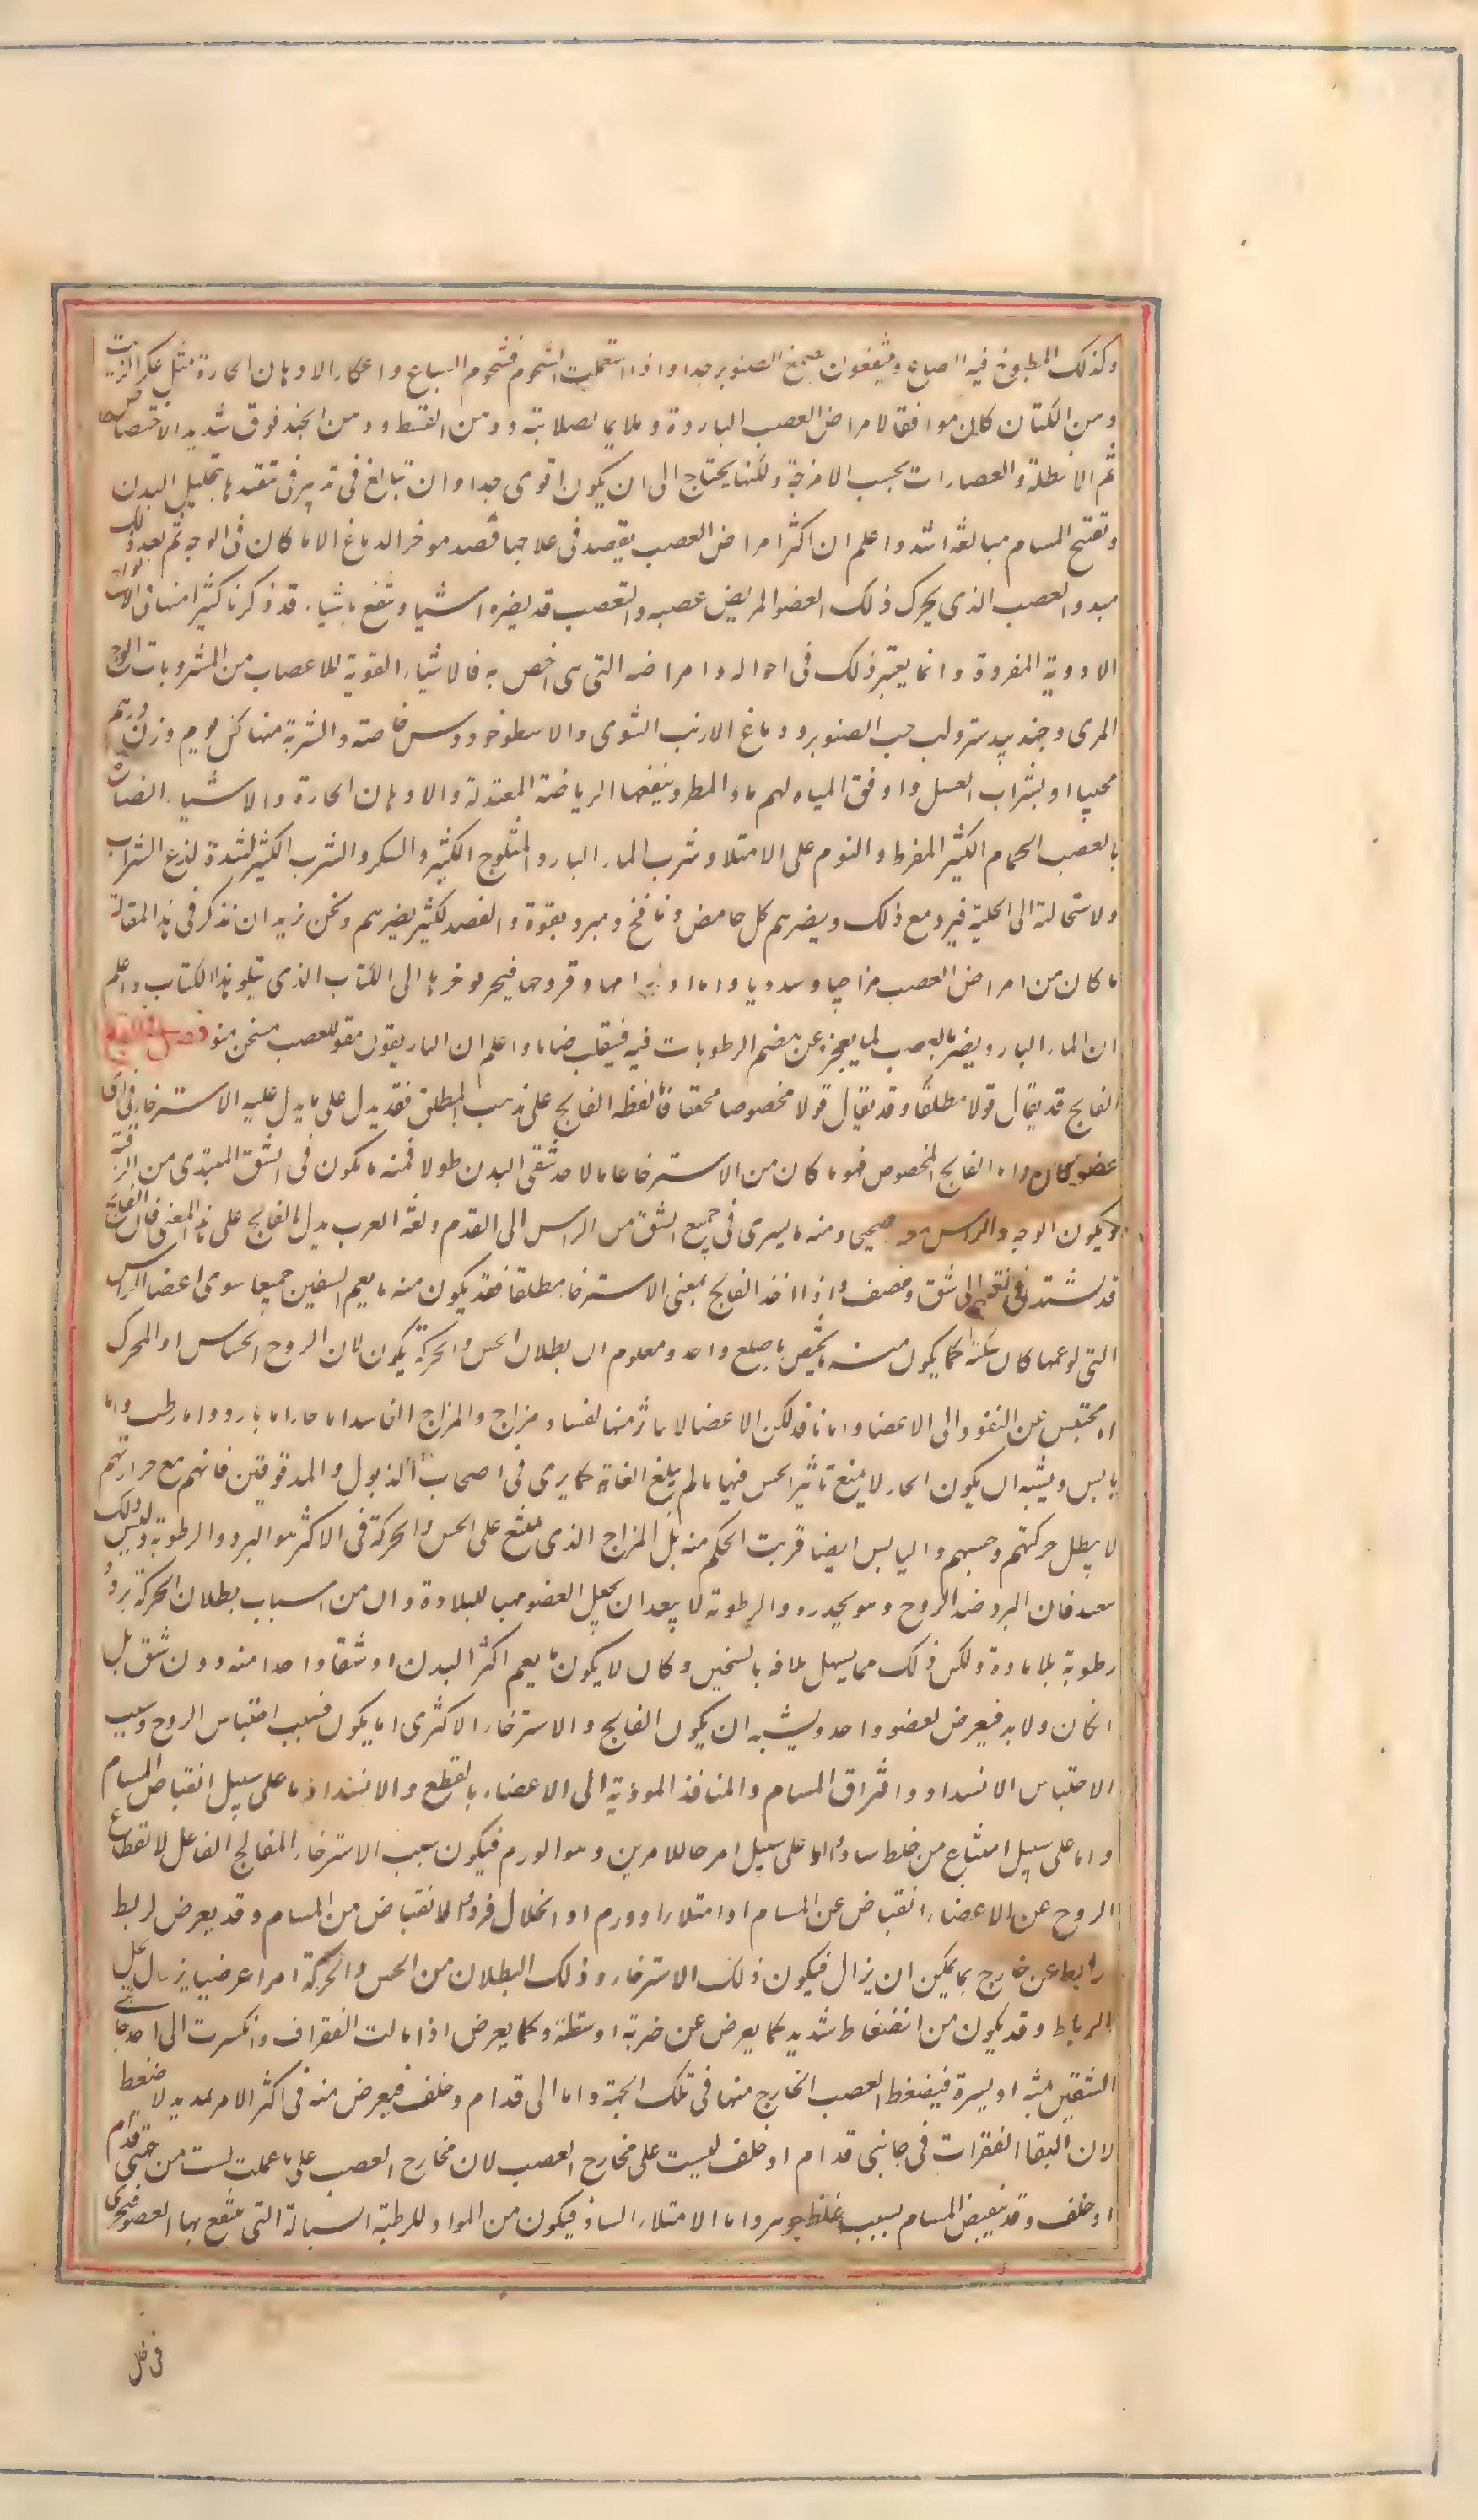 وكذلك المطبوخ فيه الضباع وينتفعون بصمغ الصنوبر جدا واذا استعملت الشحوم فشحوم السباع واعكار الادهان الحارة مثل عكر الزيت
ومن الكتان كان موافقا لامراض العصب الباردة وملايما لصلابته ودهن القسط ودهن الحندقوق شديد الاختصاص
ثم الانطلة والعصارات بحسب الامزجة ولكنها يحتاج الى ان يكون اقوى جدا وان تبالغ فى تدبير فى تنفيذها بتحليل البدن
وتفتح المسام مبالغة اشد واعلم ان اكثر امراض العصب يقصد فى علاجها قصد موخر الدماغ الا ما كان فى الوجه ثم بعد ذلك
مبدو العصب الذى يحرك ذلك العضو المريض عصبه والعصب قد يضره اشيا وتنفع باشياء قد ذكرنا كثيرا منها فى الواح
الادوية المفردة وانما يعتبر ذلك فى احواله وامراضه التى هى اخص به فالاشياء المقوية للاعصاب من المشروبات الوج
المربى وجندبيدستر ولب حب الصنوبر ودماغ الارنب الشوى والاسطوخودوس خاصة والشربة منها كل يوم وزن درهم
محببا او بشراب العسل واوفق المياه لهم ماء المطر وينفعها الرياضة المعتدلة والادهان الحارة والاشياء الضارة
بالعصب الجماع الكثير المفرط والنوم على الامتلا وشرب الماء البارد المثلوج الكثير والسكر والشرب الكثير لشدة لذع الشراب
ولاستحالته الى الخلية فيرد مع ذلك ويضرهم كل حامض ونافخ ومبرد بقوة والفصد الكثير يضرهم ونحن نريد ان نذكر فى هذا المقالة
ما كان من امراض العصب مزاجيا وسدديا واما اورامها وقروحها فيحر لوخرها الى الكتاب الذى يتلو هذا الكتاب واعلم
ان الماء البارد يضر بالعصب لما يعجزه عن هضم الرطوبات فيه فينقلب خاما واعلم ان الغاريقون مقو للعصب مسخن منو فصل فى الفالج
الفالج قد يقال قولا مطلقا وقد يقال قولا مخصوصا محققا فاما لفظة الفالج على مذهب المطلق فقد يدل على ما يدل عليه الاسترخاء فى اى
عضو كان واما الفالج المخصوص فهو ما كان من الاسترخا عاما لاحد شقى البدن طولا فمنه ما يكون فى الشق المبتدى من الرقبة
ويكون الوجه والراس معه صحيحى ومنه ما يسرى فى جميع الشق من الراس الى القدم ولغة العرب يدل بالفالج على هذا المعنى فان الفلج
قد يشتد فى لغتهم الى شق ونصف واذا اخذ الفالج بمعنى الاسترخا مطلقا فقد يكون منه ما يعم الشقين جميعا سوى اعضا الراس
التى لو عمها كان سكتة كما يكون منه ما يختص باصبع واحد ومعلوم ان بطلان الحس والحركة يكون لان الروح الحساس او المحرك
اما محتبس عن النفوذ الى الاعضا واما نافذ لكن الاعضا لا تاثر منها لفساد مزاج والمزاج الفاسد اما حار اما بارد واما رطب واما
يابس ويشبه ان يكون الحار لا يمنع تاثير الحس فيها ما لم يبلغ الغاية كما يرى فى اصحاب الذبول والمدقوقين فانهم مع حرارتهم
لا يبطل حركتهم وحسهم واليابس ايضا قريب الحكم منه بل المزاج الذى يمنع على الحس والحركة فى الاكثر هو البرد والرطوبة وليس ذلك
ببعيد فان البرد ضد الروح وهو يخدره والرطوبة لا يبعد ان يجعل العضو مهيا للبلادة وان من اسباب بطلان الحركة برد و
رطوبة بلا مادة ولكن ذلك مما يسهل تلافه بالتسخين وكان لا يكون ما يعم اكثر البدن او شقا واحدا منه دون شق بل
ان كان ولا بد فيعرض لعضو واحد ويشبه ان يكون الفالج والاسترخاء الاكثرى اما يكون فسبب احتباس الروح وسبب
الاحتباس الانسداد وافتراق المسام والمنافذ الموذية الى الاعضاء بالقطع والانسداد اما على سبيل انقباض المسام
واما على سبيل امتناع من خلط ساد واما على سبيل امر جامع للامرين وهو الورم فيكون سبب الاسترخاء المفالج الفاعل لانقطاع
الروح عن الاعضاء انقباض عن المسام او امتلاء او ورم او انحلال فرد والانقباض من المسام وقد يعرض لربط
رابط عن خارج بما يمكن ان يزال فيكون ذلك الاسترخاء وذلك البطلان من الحس والحركة امرا عرضيا يزول بحل
الرباط وقد يكون من انضغاط شديد كما يعرض عن ضربة او سقطة وكما يعرض اذا مالت الفقرات وانكسرت الى احد جانبى
الشقين يمنة او يسرة فيضغط العصب الخارج منها فى تلك الجهة واما الى قدام وخلف فيعرض منه فى اكثر الامر تمديد لا ضغط
لان التقا الفقرات فى جانبى قدام او خلف ليست على مخارج العصب لان مخارج العصب على ما علمت ليست من جهتى قدام
او خلف وقد ينقبض المسام بسبب غلظ جوهر واما الامتلاء الساد فيكون من المواد الرطبة السيالة التى ينتفع بها العضو فيجرى
فى خلل